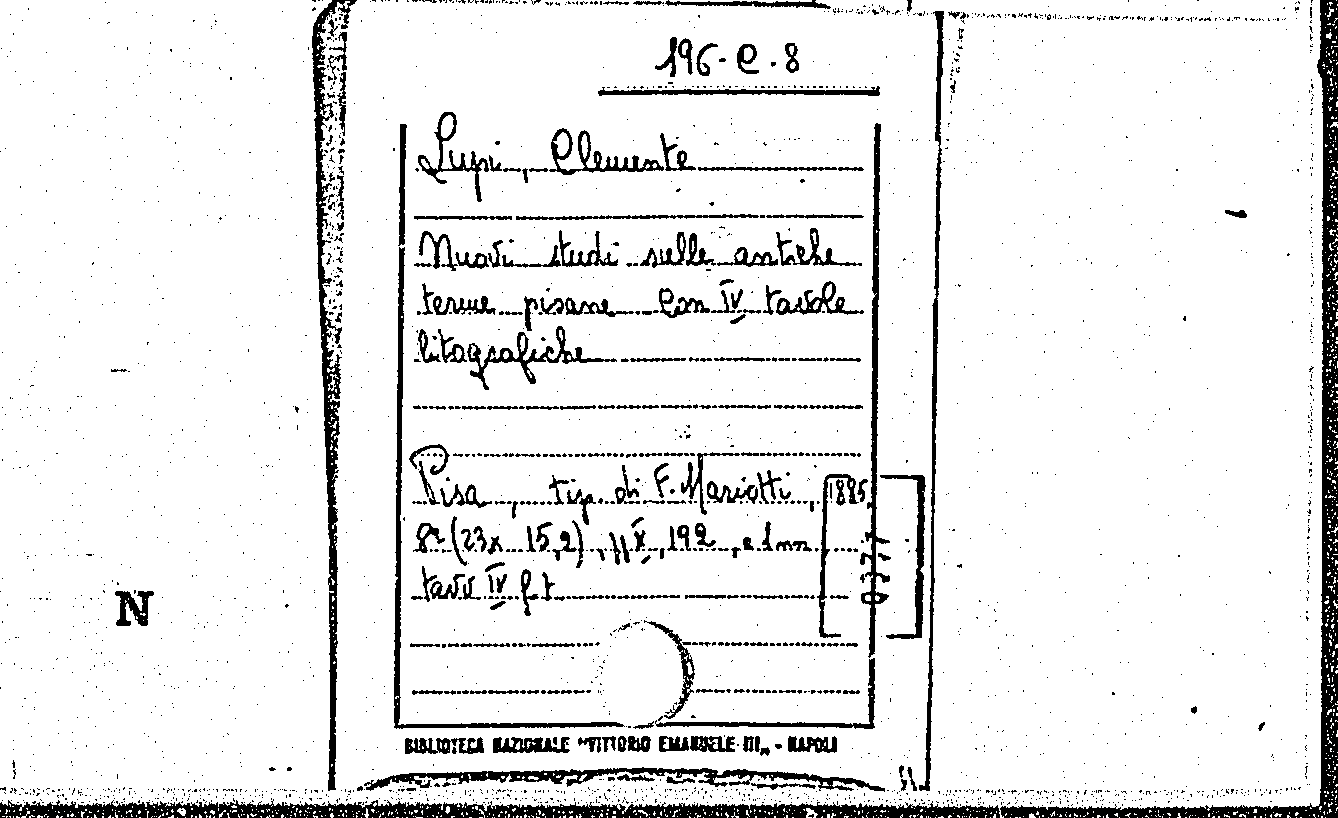 196. C. 8
Lupi, Clemente
Nuovi studi sulle antiche
terme pisane Con IV tavole
litografiche
Pisa, tip. di F. Mariotti, 1885.
8º (23x 15,2), pp X, 192, e 1 nn
tavv IV f t
0377
N
BIBLIOTECA NAZIONALE "VITTORIO EMANUELE III„ - NAPOLI